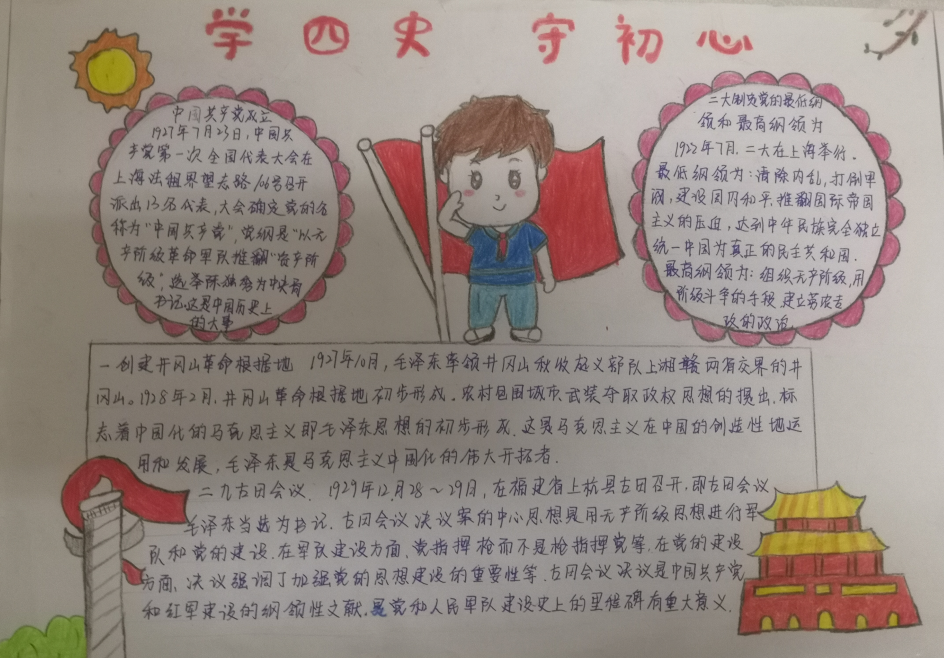 学四史 守初心
中国共产党成立
1927年7月23日,中国共
产党第一次全国代表大会在
上海法租界望志路106号召开
派出13名代表,大会确定党的名
称为“中国共产党”,党纲是“以无
产阶级革命军队推翻“资产阶
级”,选举陈独秀为中央局
书记.这是中国历史上
的大事
二大制定党的最低纲
领和最高纲领为
1922年7月.二大在上海举行.
最低纲领为:消除内乱,打倒军
阀,建设国内和平.推翻国际帝国
主义的压迫,达到中华民族完全独立
统一中国为真正的民主共和国.
最高纲领为:组织无产阶级,用
阶级斗争的手段 建立劳农专
政的政治.
一创建井冈山革命根据地 1927年10月,毛泽东率领井冈山秋收起义部队上湘赣两省交界的井
冈山。1928年2月,井冈山革命根据地初步形成.农村包围城市 武装夺取政权思想的提出,标
志着中国化的马克思主义即毛泽东思想的初步形成.这是马克思主义在中国的创造性地运
用和发展,毛泽东是马克思主义中国化的伟大开拓者.
二九古田会议. 1929年12月28~29日,在福建省上杭县古田召开.即古田会议
毛泽东当选为书记.古田会议决议案的中心思想是用无产阶级思想进行军
队和党的建设.在军队建设方面,党指挥枪而不是枪指挥党等.在党的建设
方面,决议强调了加强党的思想建设的重要性等.古田会议决议是中国共产党
和红军建设的纲领性文献,是党和人民军队建设史上的里程碑有重大意义.